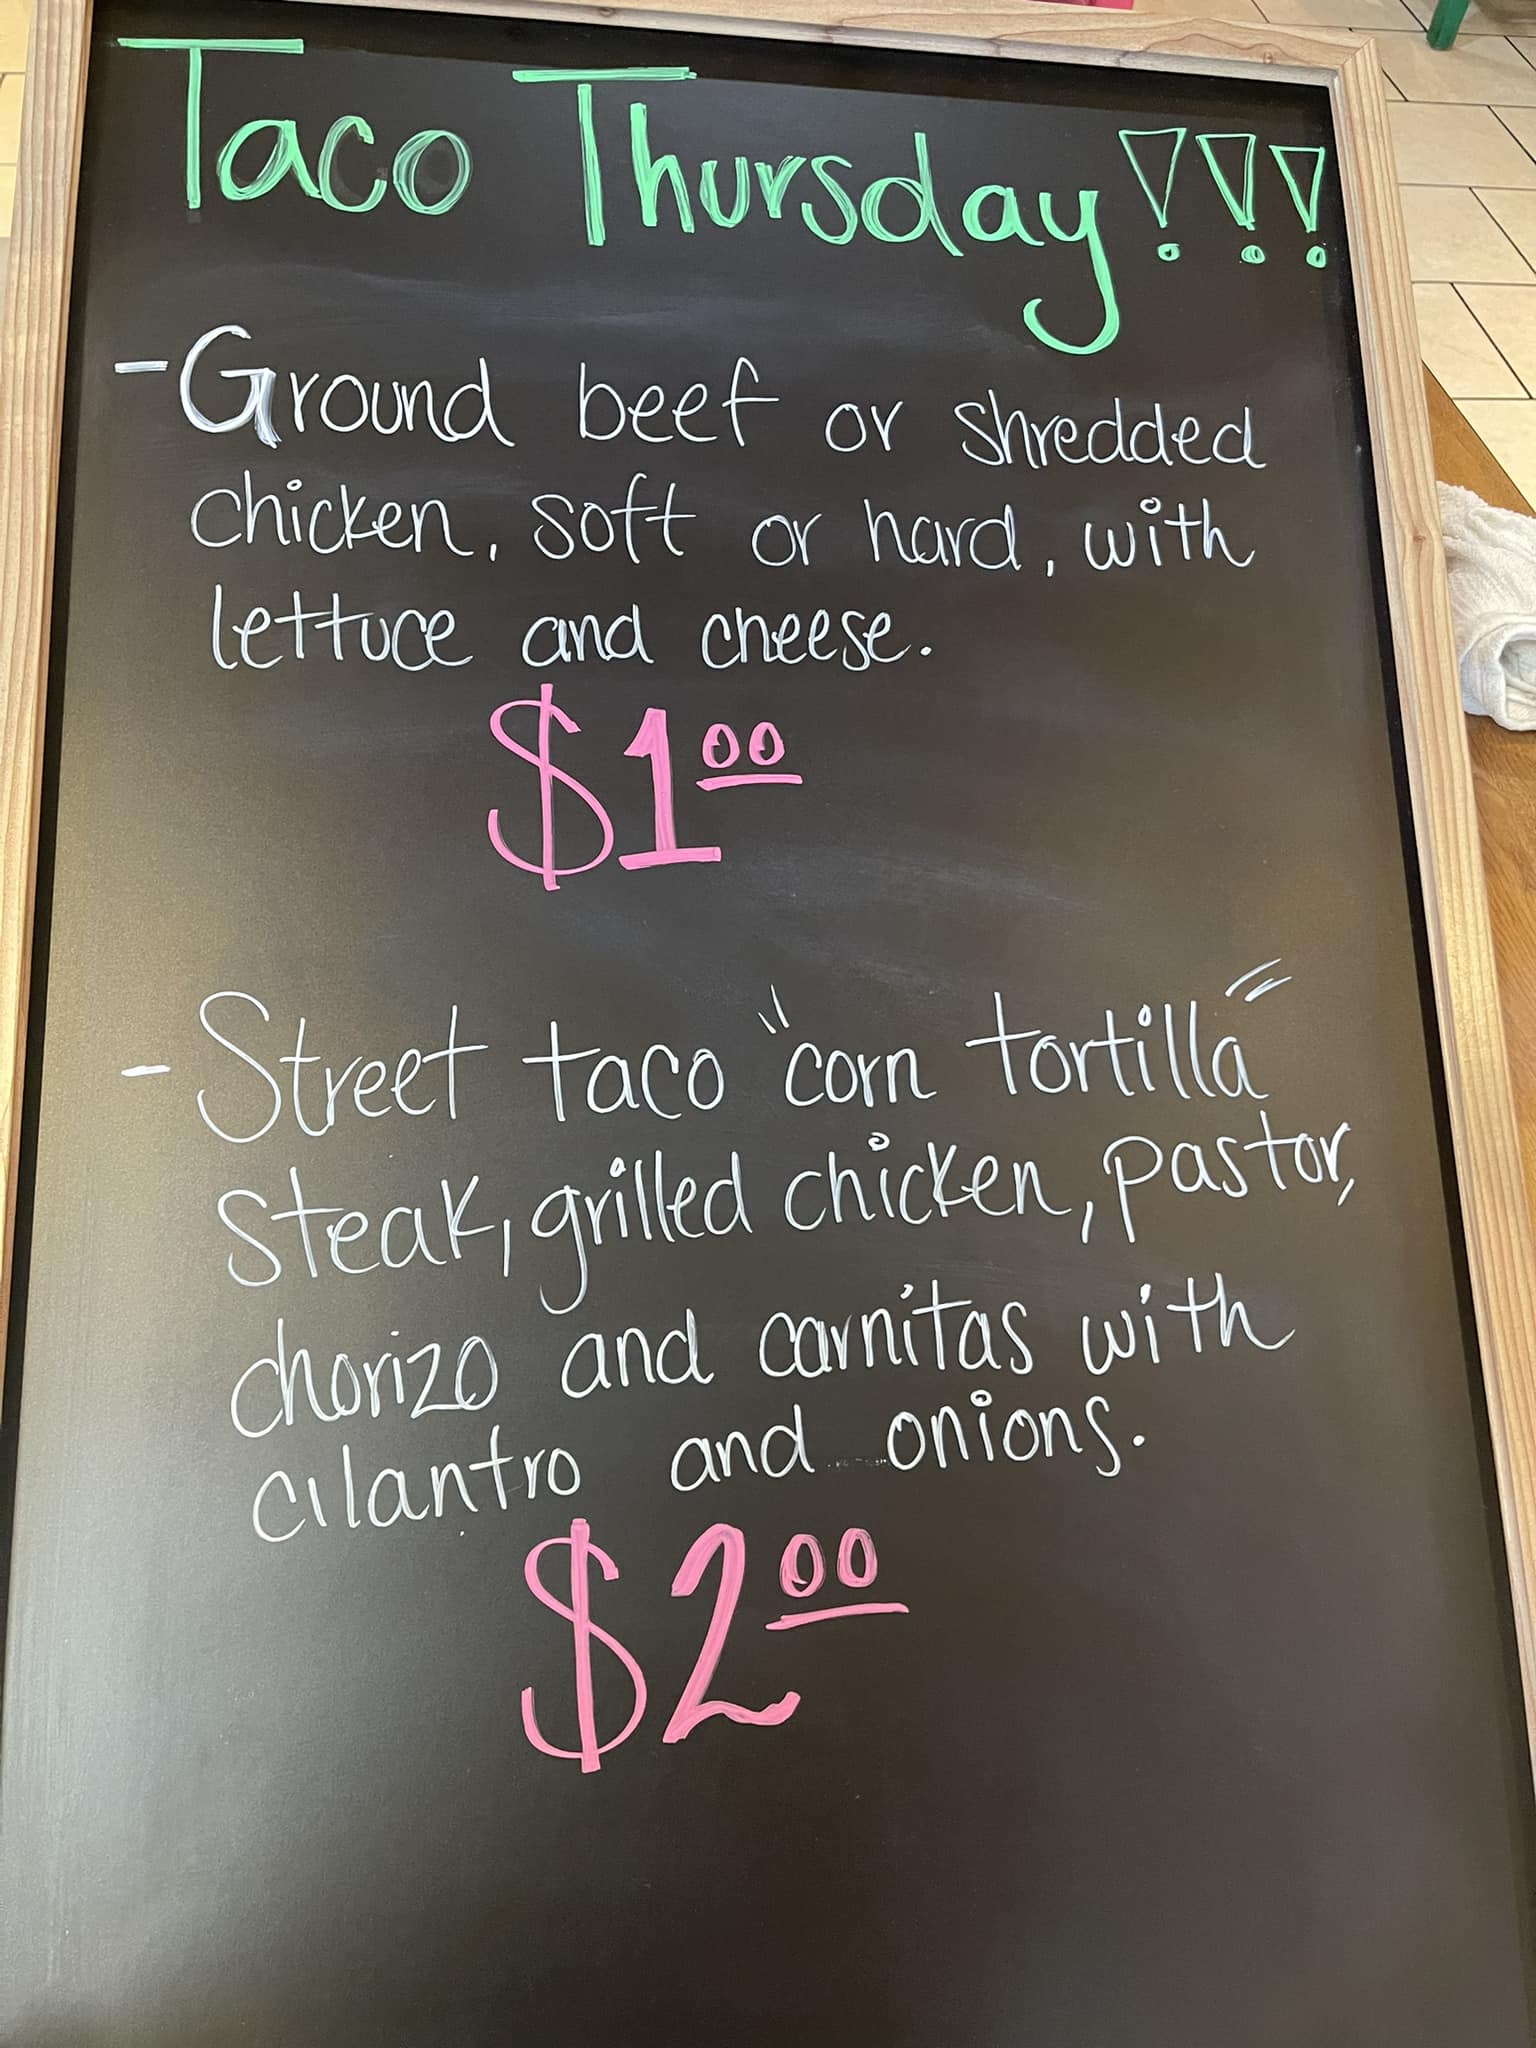 Taco Thursday!!!
-Ground beef or shredded
chicken, soft or hard, with
lettuce and cheese.
$1.00
-Street taco "corn tortilla"
Steak, grilled chicken, pastor,
chorizo and carnitas with
cilantro and onions.
$2.00